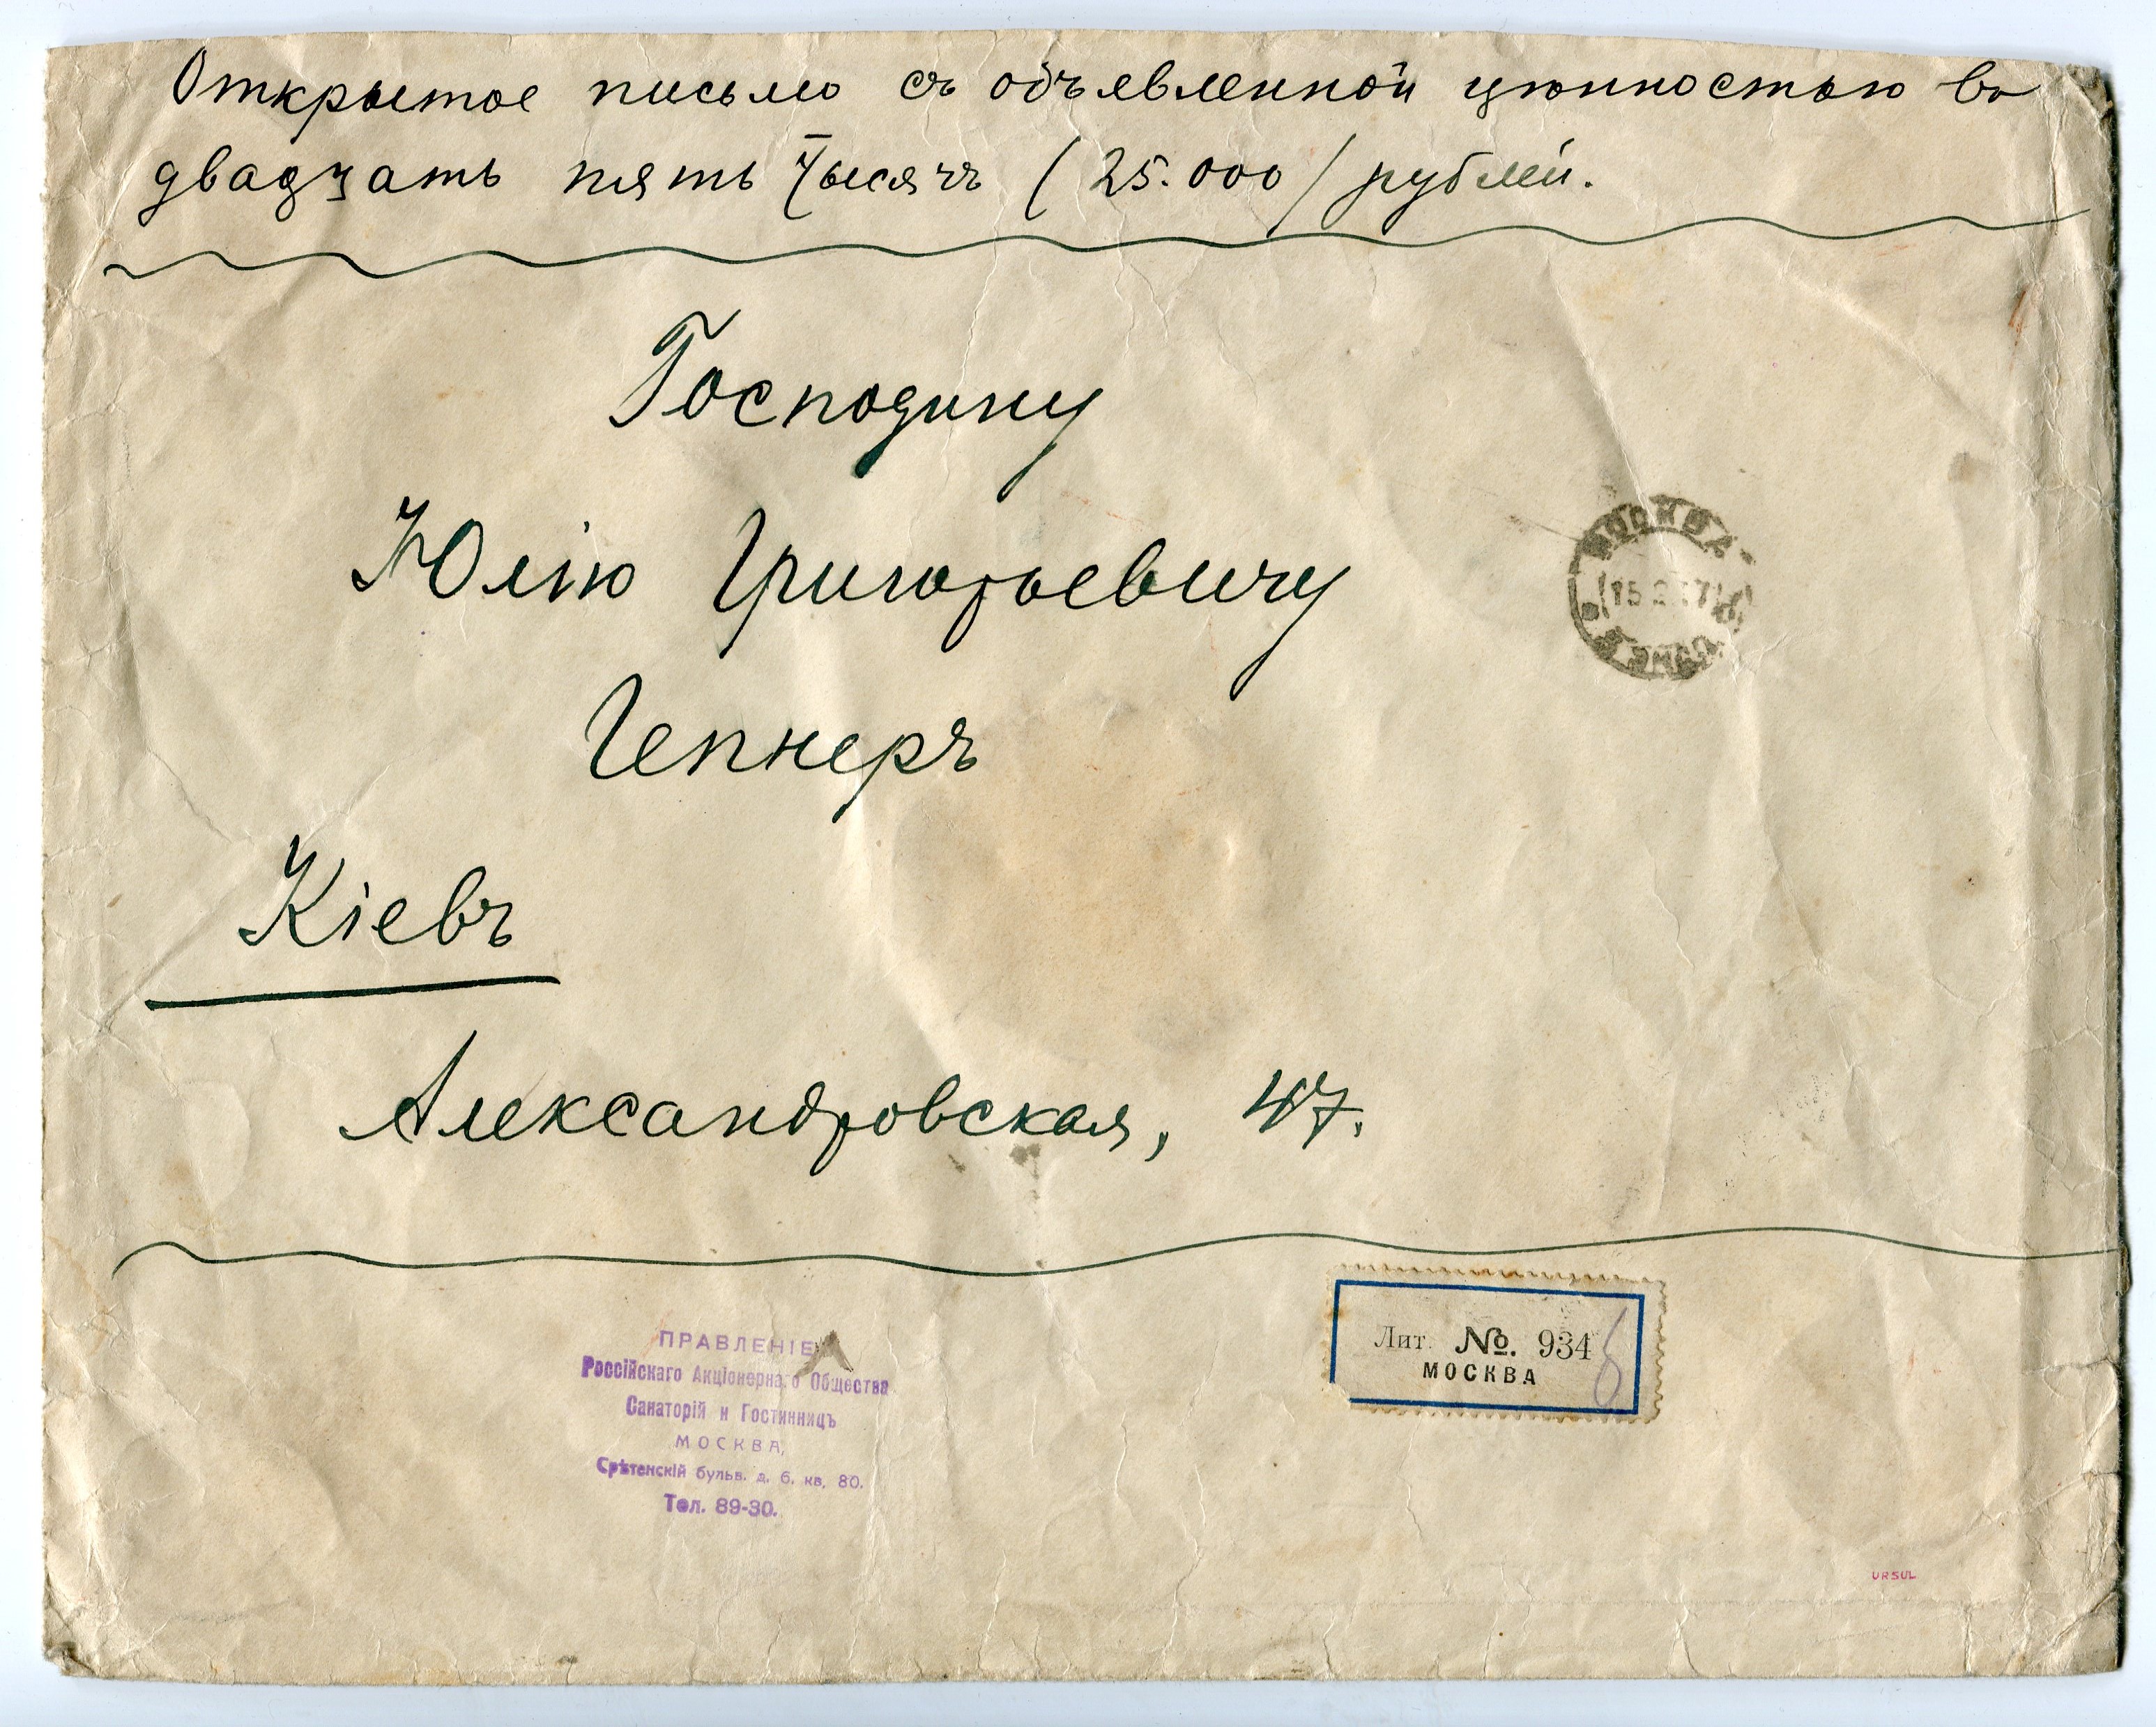 Открытое письмо съ объявленной цѣнностью въ
двадцать пять тысячъ (25.000) рублей.
Господину
Юлію Григорьевичу
Гепнеръ
Кіевъ
Александровская, 47.
МОСКВА
15
ПРАВЛЕНІЕ
Россійскаго Акціонернаго Общества
Санаторій и Гостинницъ
МОСКВА,
Срѣтенскій бульв. д. 6, кв. 80.
Тел. 89-30.
Лит. №. 934
МОСКВА
URSUL